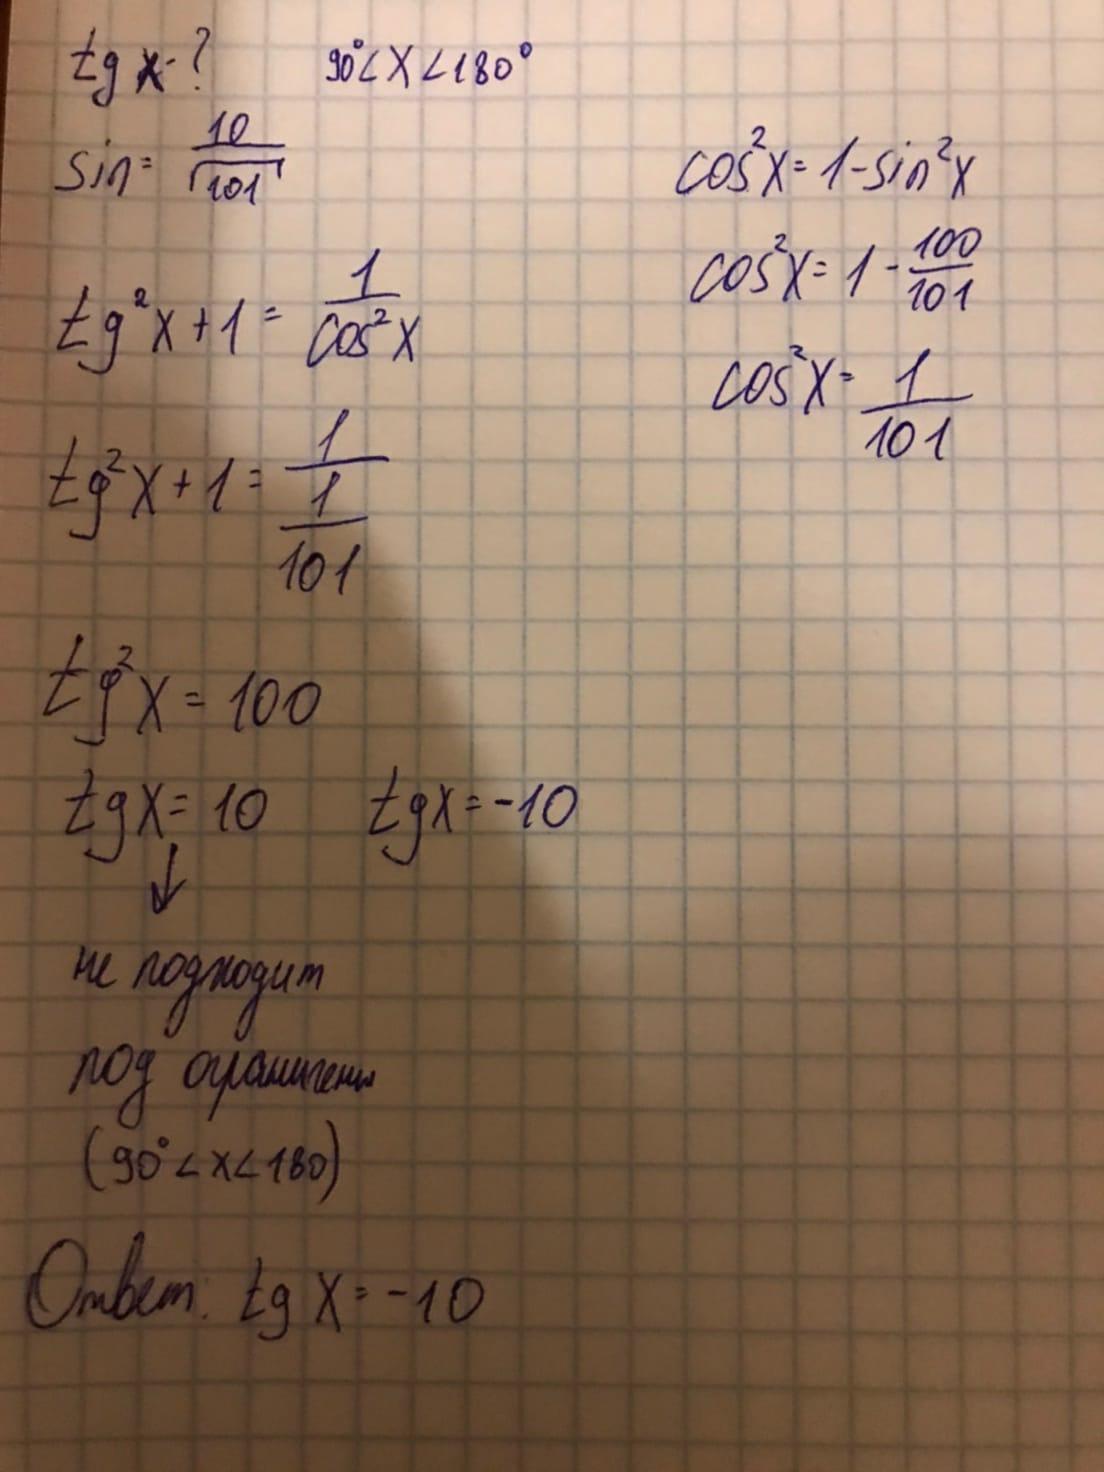 tg x - ? 90° < x < 180°
sin = 10/√101
cos²x = 1 - sin²x
cos²x = 1 - 100/101
cos²x = 1/101
tg²x + 1 = 1/cos²x
tg²x + 1 = 1/(1/101)
tg²x = 100
tg x = 10 tg x = -10
↓
не подходит
под ограничения
(90° < x < 180)
Ответ: tg x = -10